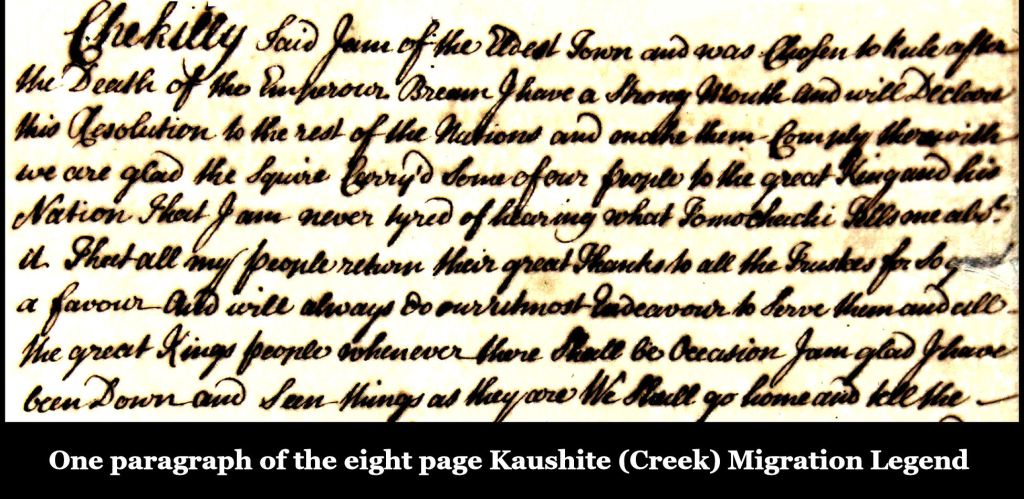 Chekilly Said I am of the Eldest Town and was Chosen to Rule after
the Death of the Emperour Bream I have a Strong Mouth and will Declare
this Resolution to the rest of the Nations and make them Comply therewith
we are glad the Squire Carry'd Some of our people to the great King and his
Nation That I am never tyred of hearing what Tomochachi Tells me abot.
it That all my people return their great Thanks to all the Trustees for So
a favour And will always do our utmost Endeavour to Serve them and all
the great Kings people whenever there Shall be Occasion I am glad I have
been Down and Seen things as they are We Shall go home and tell the
One paragraph of the eight page Kaushite (Creek) Migration Legend